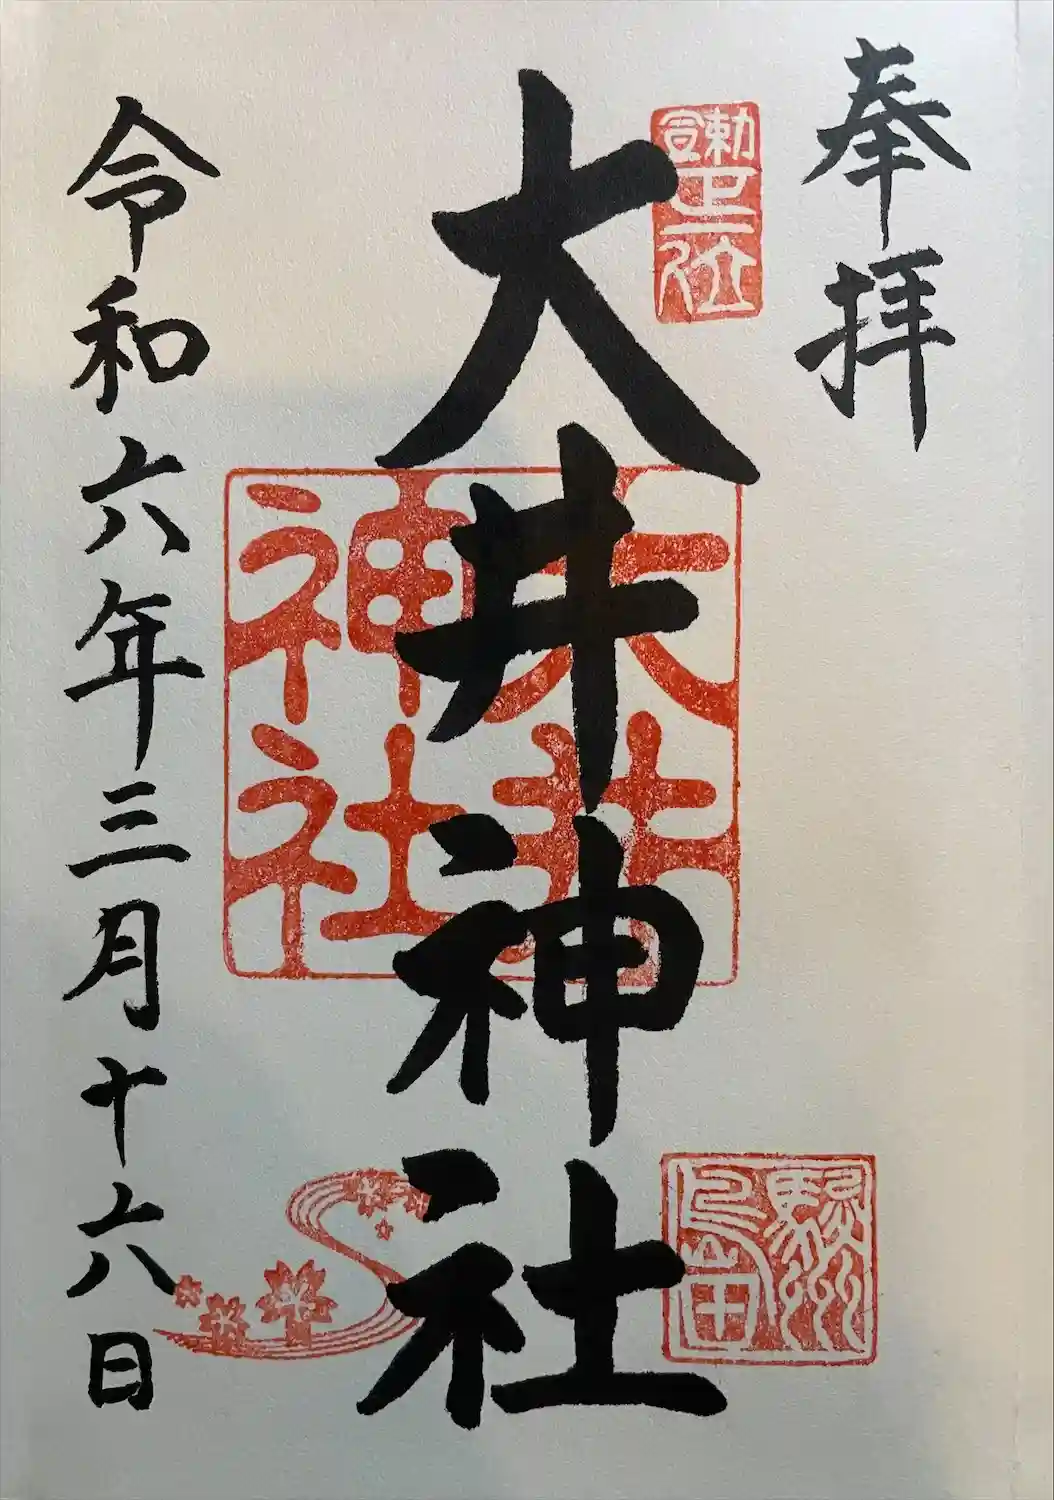 奉拝
勅宣正一位
大井神社
大井
神社
駿州
島田
令和六年三月十六日